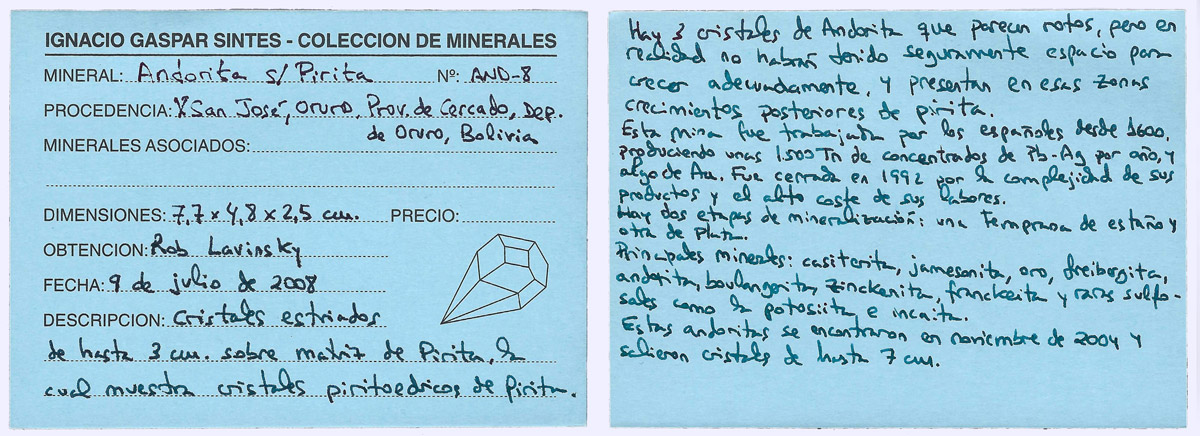 IGNACIO GASPAR SINTES - COLECCION DE MINERALES
MINERAL: Andorita s/ Pirita Nº: AND-8
PROCEDENCIA: San José, Oruro, Prov. de Cercado, Dep.
de Oruro, Bolivia
MINERALES ASOCIADOS:
DIMENSIONES: 7,7 x 4,8 x 2,5 cm. PRECIO:
OBTENCION: Rob Lavinsky
FECHA: 9 de julio de 2008
DESCRIPCION: Cristales estriados
de hasta 3 cm. sobre matriz de Pirita, la
cual muestra cristales piritoedricos de Pirita.
Hay 3 cristales de Andorita que parecen rotos, pero en
realidad no habrán tenido seguramente espacio para
crecer adecuadamente, y presentan en esas zonas
crecimientos posteriores de pirita.
Esta mina fue trabajada por los españoles desde 1600,
produciendo unas 1.500 Tn de concentrados de Pb-Ag por año, y
algo de Au. Fue cerrada en 1992 por la complejidad de sus
productos y el alto coste de sus labores.
Hay dos etapas de mineralización: una temprana de estaño y
otra de Plata.
Principales minerales: casiterita, jamesonita, oro, freibergita,
andorita, boulangerita, zinckenita, franckeita y raras sulfo-
sales como la potosiita e incaita.
Estas andoritas se encontraron en noviembre de 2004 y
salieron cristales de hasta 7 cm.